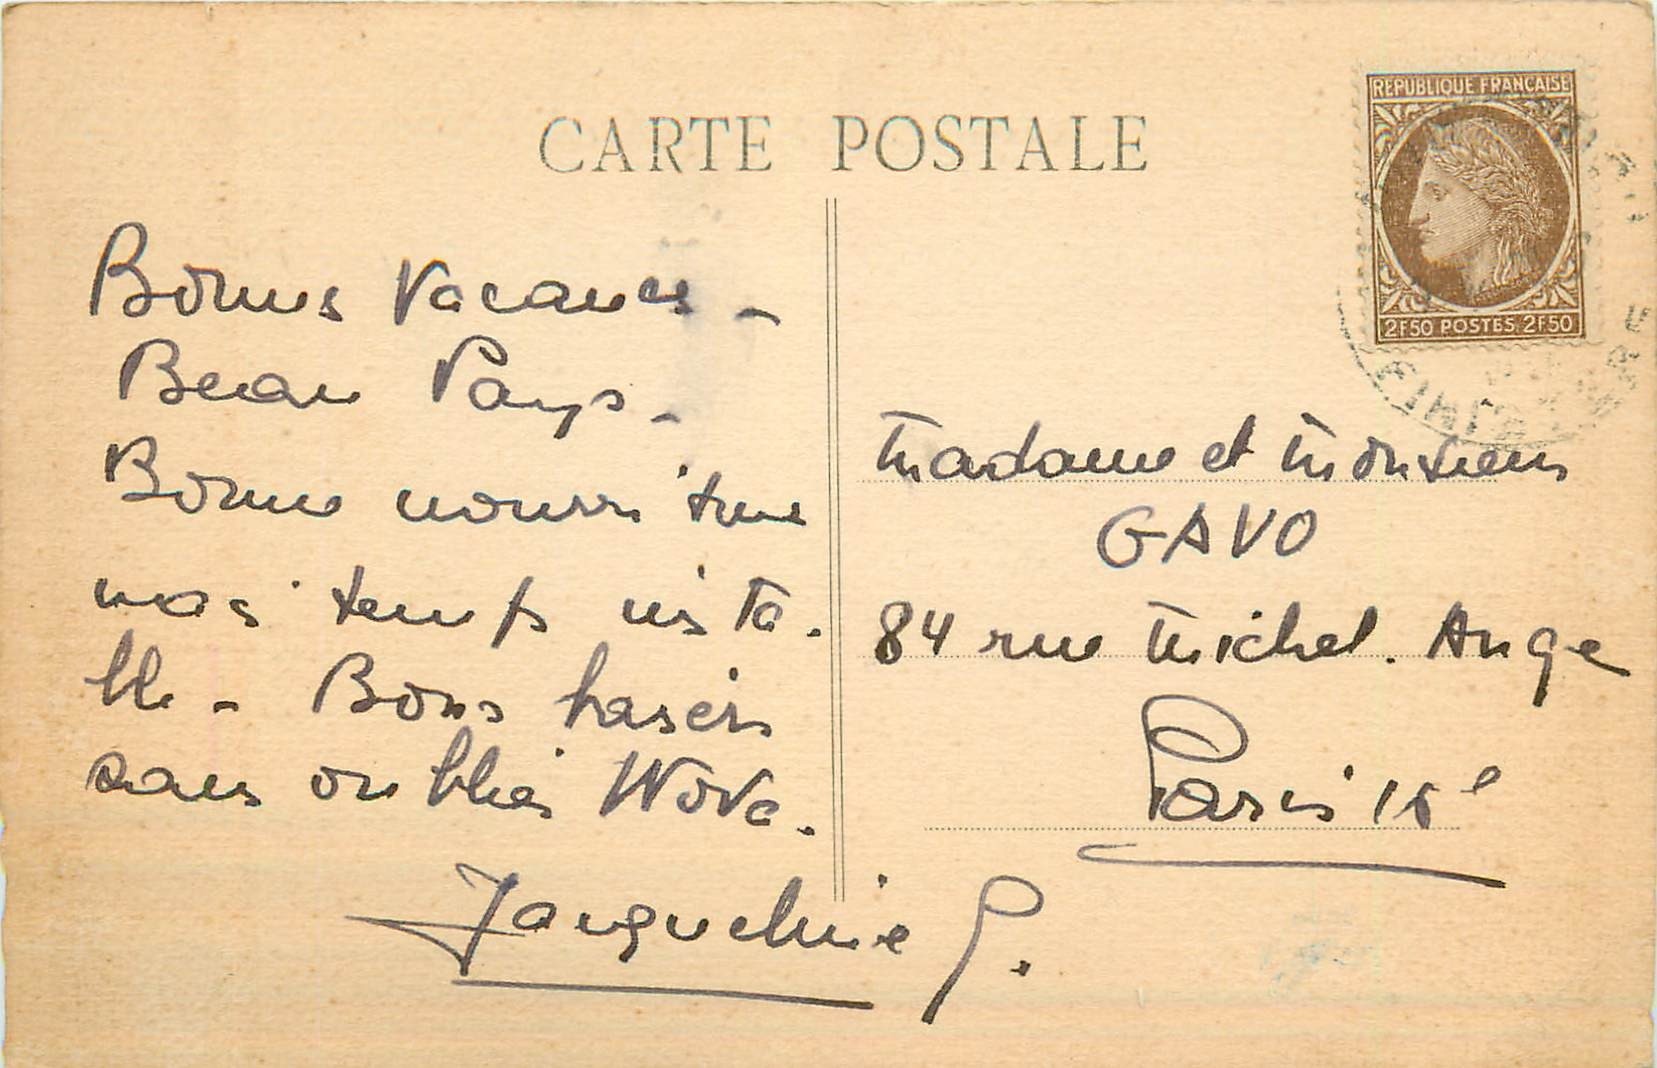 CARTE POSTALE
REPUBLIQUE FRANÇAISE
2F50 POSTES 2F50
Bonnes Vacances -
Beau Pays -
Bonne nourriture
mais temps insta-
ble - Bons baisers
sans oublier Wova.
Jacqueline P.
Madame et Monsieur
GAVO
84 rue Michel. Ange
Paris 16e